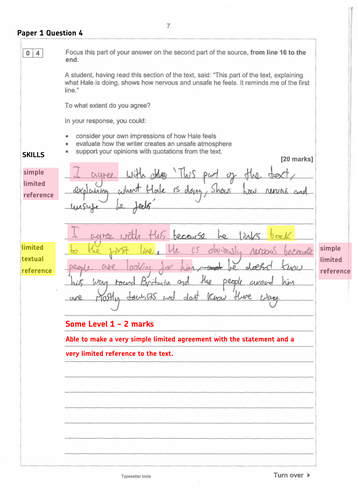 7
Paper 1 Question 4
0 4
Focus this part of your answer on the second part of the source, from line 16 to the
end.
A student, having read this section of the text, said: "This part of the text, explaining
what Hale is doing, shows how nervous and unsafe he feels. It reminds me of the first
line."
To what extent do you agree?
In your response, you could:
• consider your own impressions of how Hale feels
• evaluate how the writer creates an unsafe atmosphere
• support your opinions with quotations from the text.
[20 marks]
SKILLS
simple
limited
reference
I agree with 'This part of the text,
explaining what Hale is doing, Shows how nervous and
unsafe he feels'
limited
textual
reference
I agree with this because he links back
to the first line. He is obviously nervous because
people are looking for him, he doesnt know
his way round and the people around him
are Mostly and dont know there way.
simple
limited
reference
Some Level 1 – 2 marks
Able to make a very simple limited agreement with the statement and a
very limited reference to the text.
Typesetter code
Turn over ▶